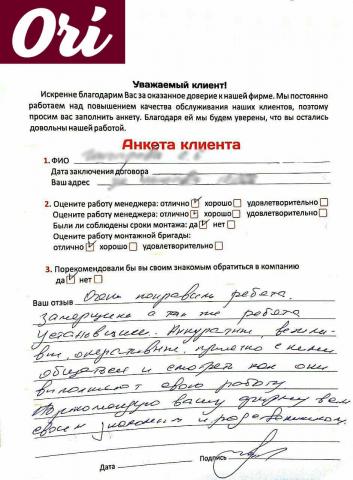 Ori
Уважаемый клиент!
Искренне благодарим Вас за оказанное доверие к нашей фирме. Мы постоянно
работаем над повышением качества обслуживания наших клиентов, поэтому
просим вас заполнить анкету. Благодаря ей мы будем уверены, что вы остались
довольны нашей работой.
Анкета клиента
1. ФИО
Дата заключения договора
Ваш адрес
2. Оцените работу менеджера: отлично хорошо удовлетворительно
Оцените работу менеджера: отлично хорошо удовлетворительно
Были ли соблюдены сроки монтажа: да нет
Оцените работу монтажной бригады:
отлично хорошо удовлетворительно
3. Порекомендовали бы вы своим знакомым обратиться в компанию
да нет
Ваш отзыв Очень понравилась работа
замерщика а так же работа
установщиков. Аккуратные, вежли-
вые, оперативные, приятно с ними
общаться и смотреть как они
выполняют свою работу
Порекомендую вашу фирму всем
своим знакомым и родственникам.
Дата Подпись